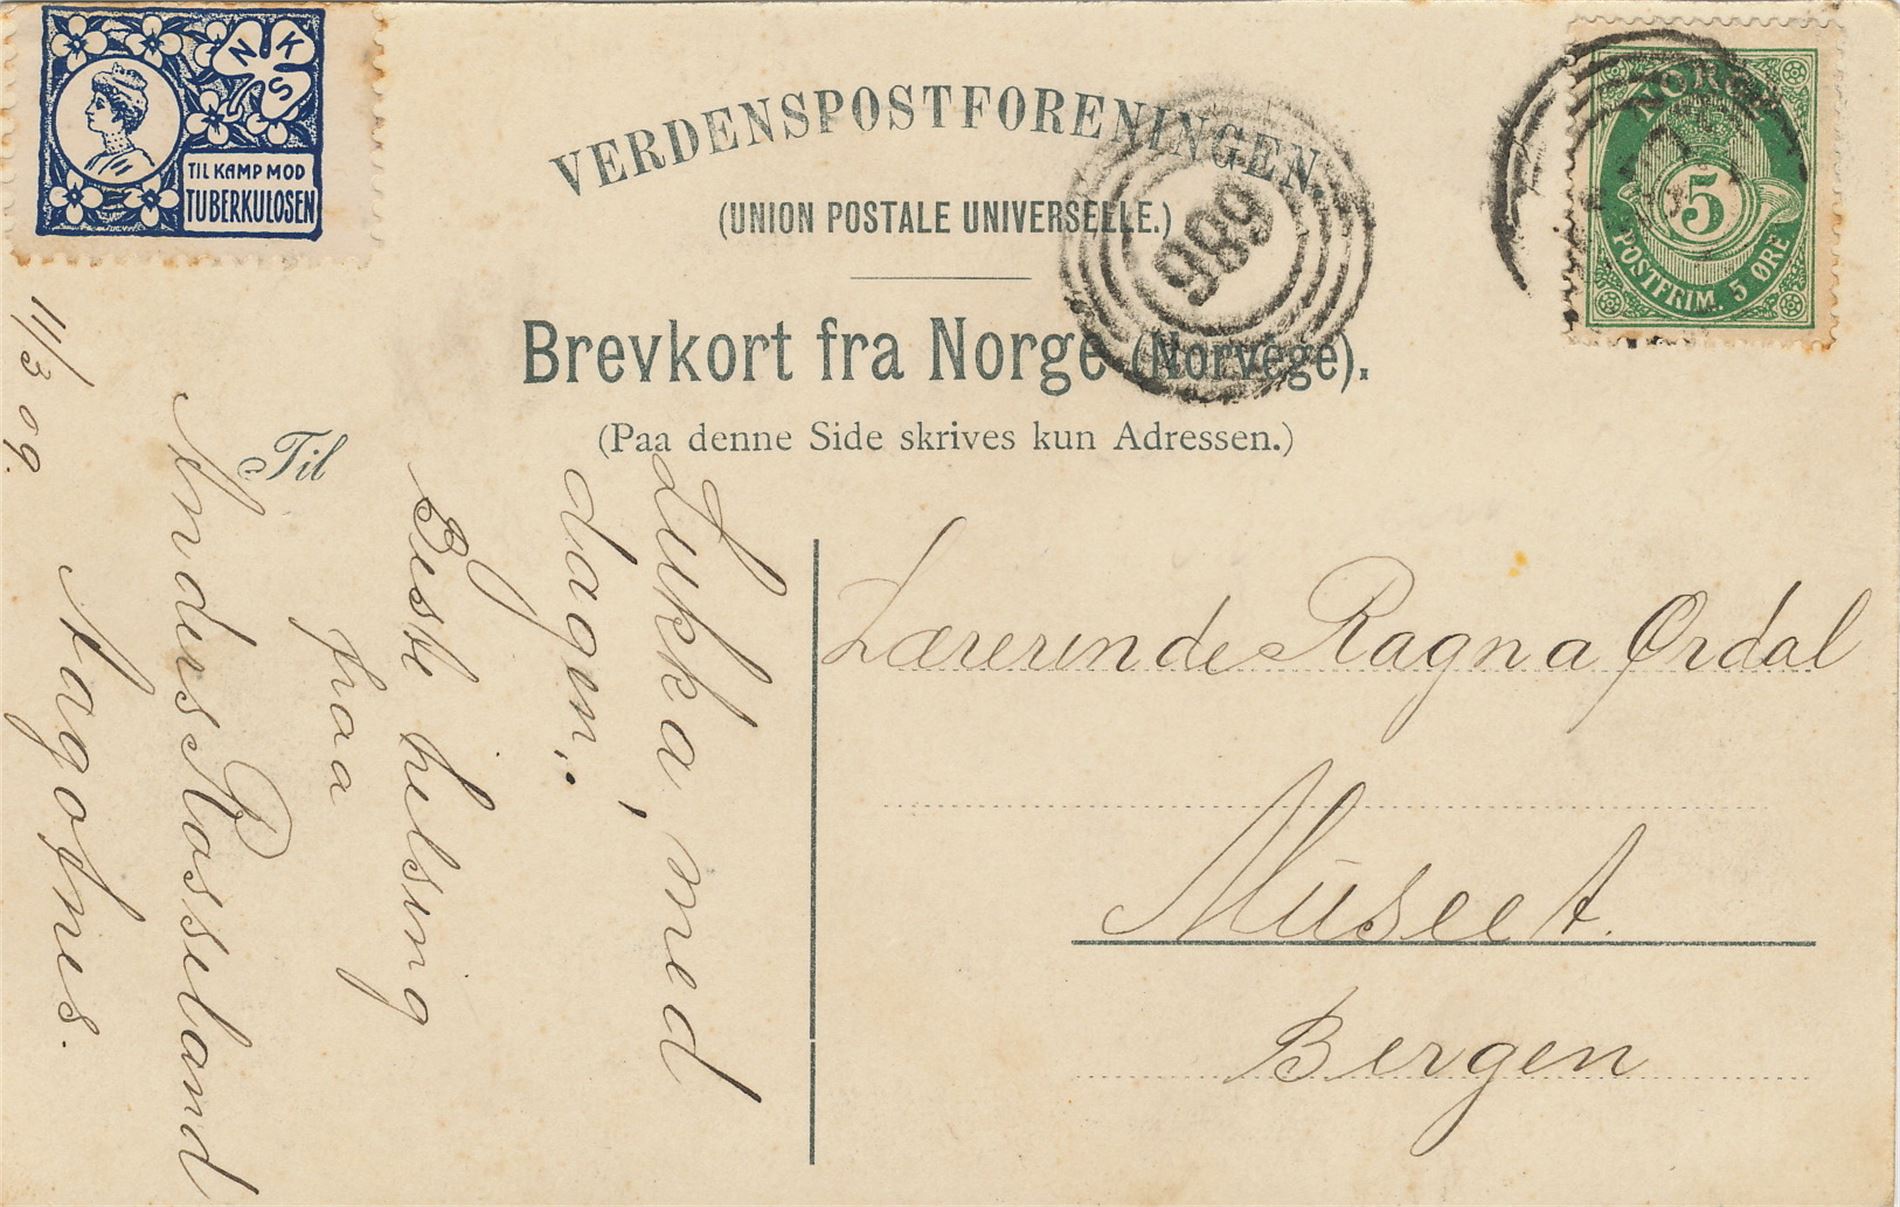 N K S
TIL KAMP MOD
TUBERKULOSEN
VERDENSPOSTFORENINGEN.
(UNION POSTALE UNIVERSELLE.)
Brevkort fra Norge (Norvège).
(Paa denne Side skrives kun Adressen.)
Til
989
NORGE
5
POSTFRIM. 5 ØRE
Lukka, med
dagen.
Beste helsing
fraa
Anders Rosseland
Aagotnes.
11/3 09.
Lærerinde Ragna Ørdal
Museet.
Bergen